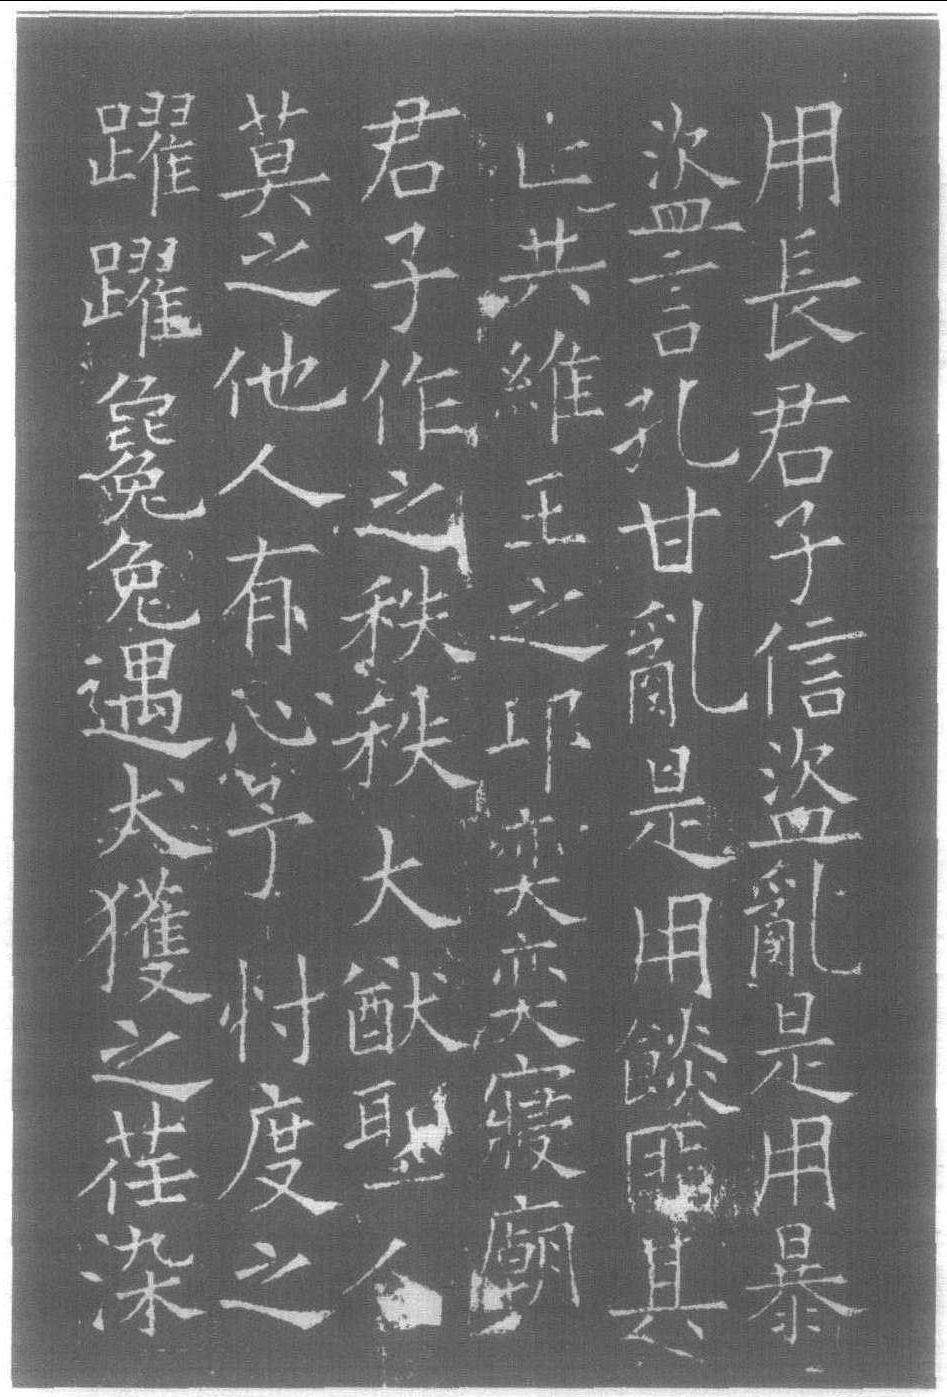 用長君子信盜亂是用暴
盜言孔甘亂是用餤匪其
止共維王之邛奕奕寢廟
君子作之秩秩大猷聖人
莫之他人有心予忖度之
躍躍毚兔遇犬獲之荏染